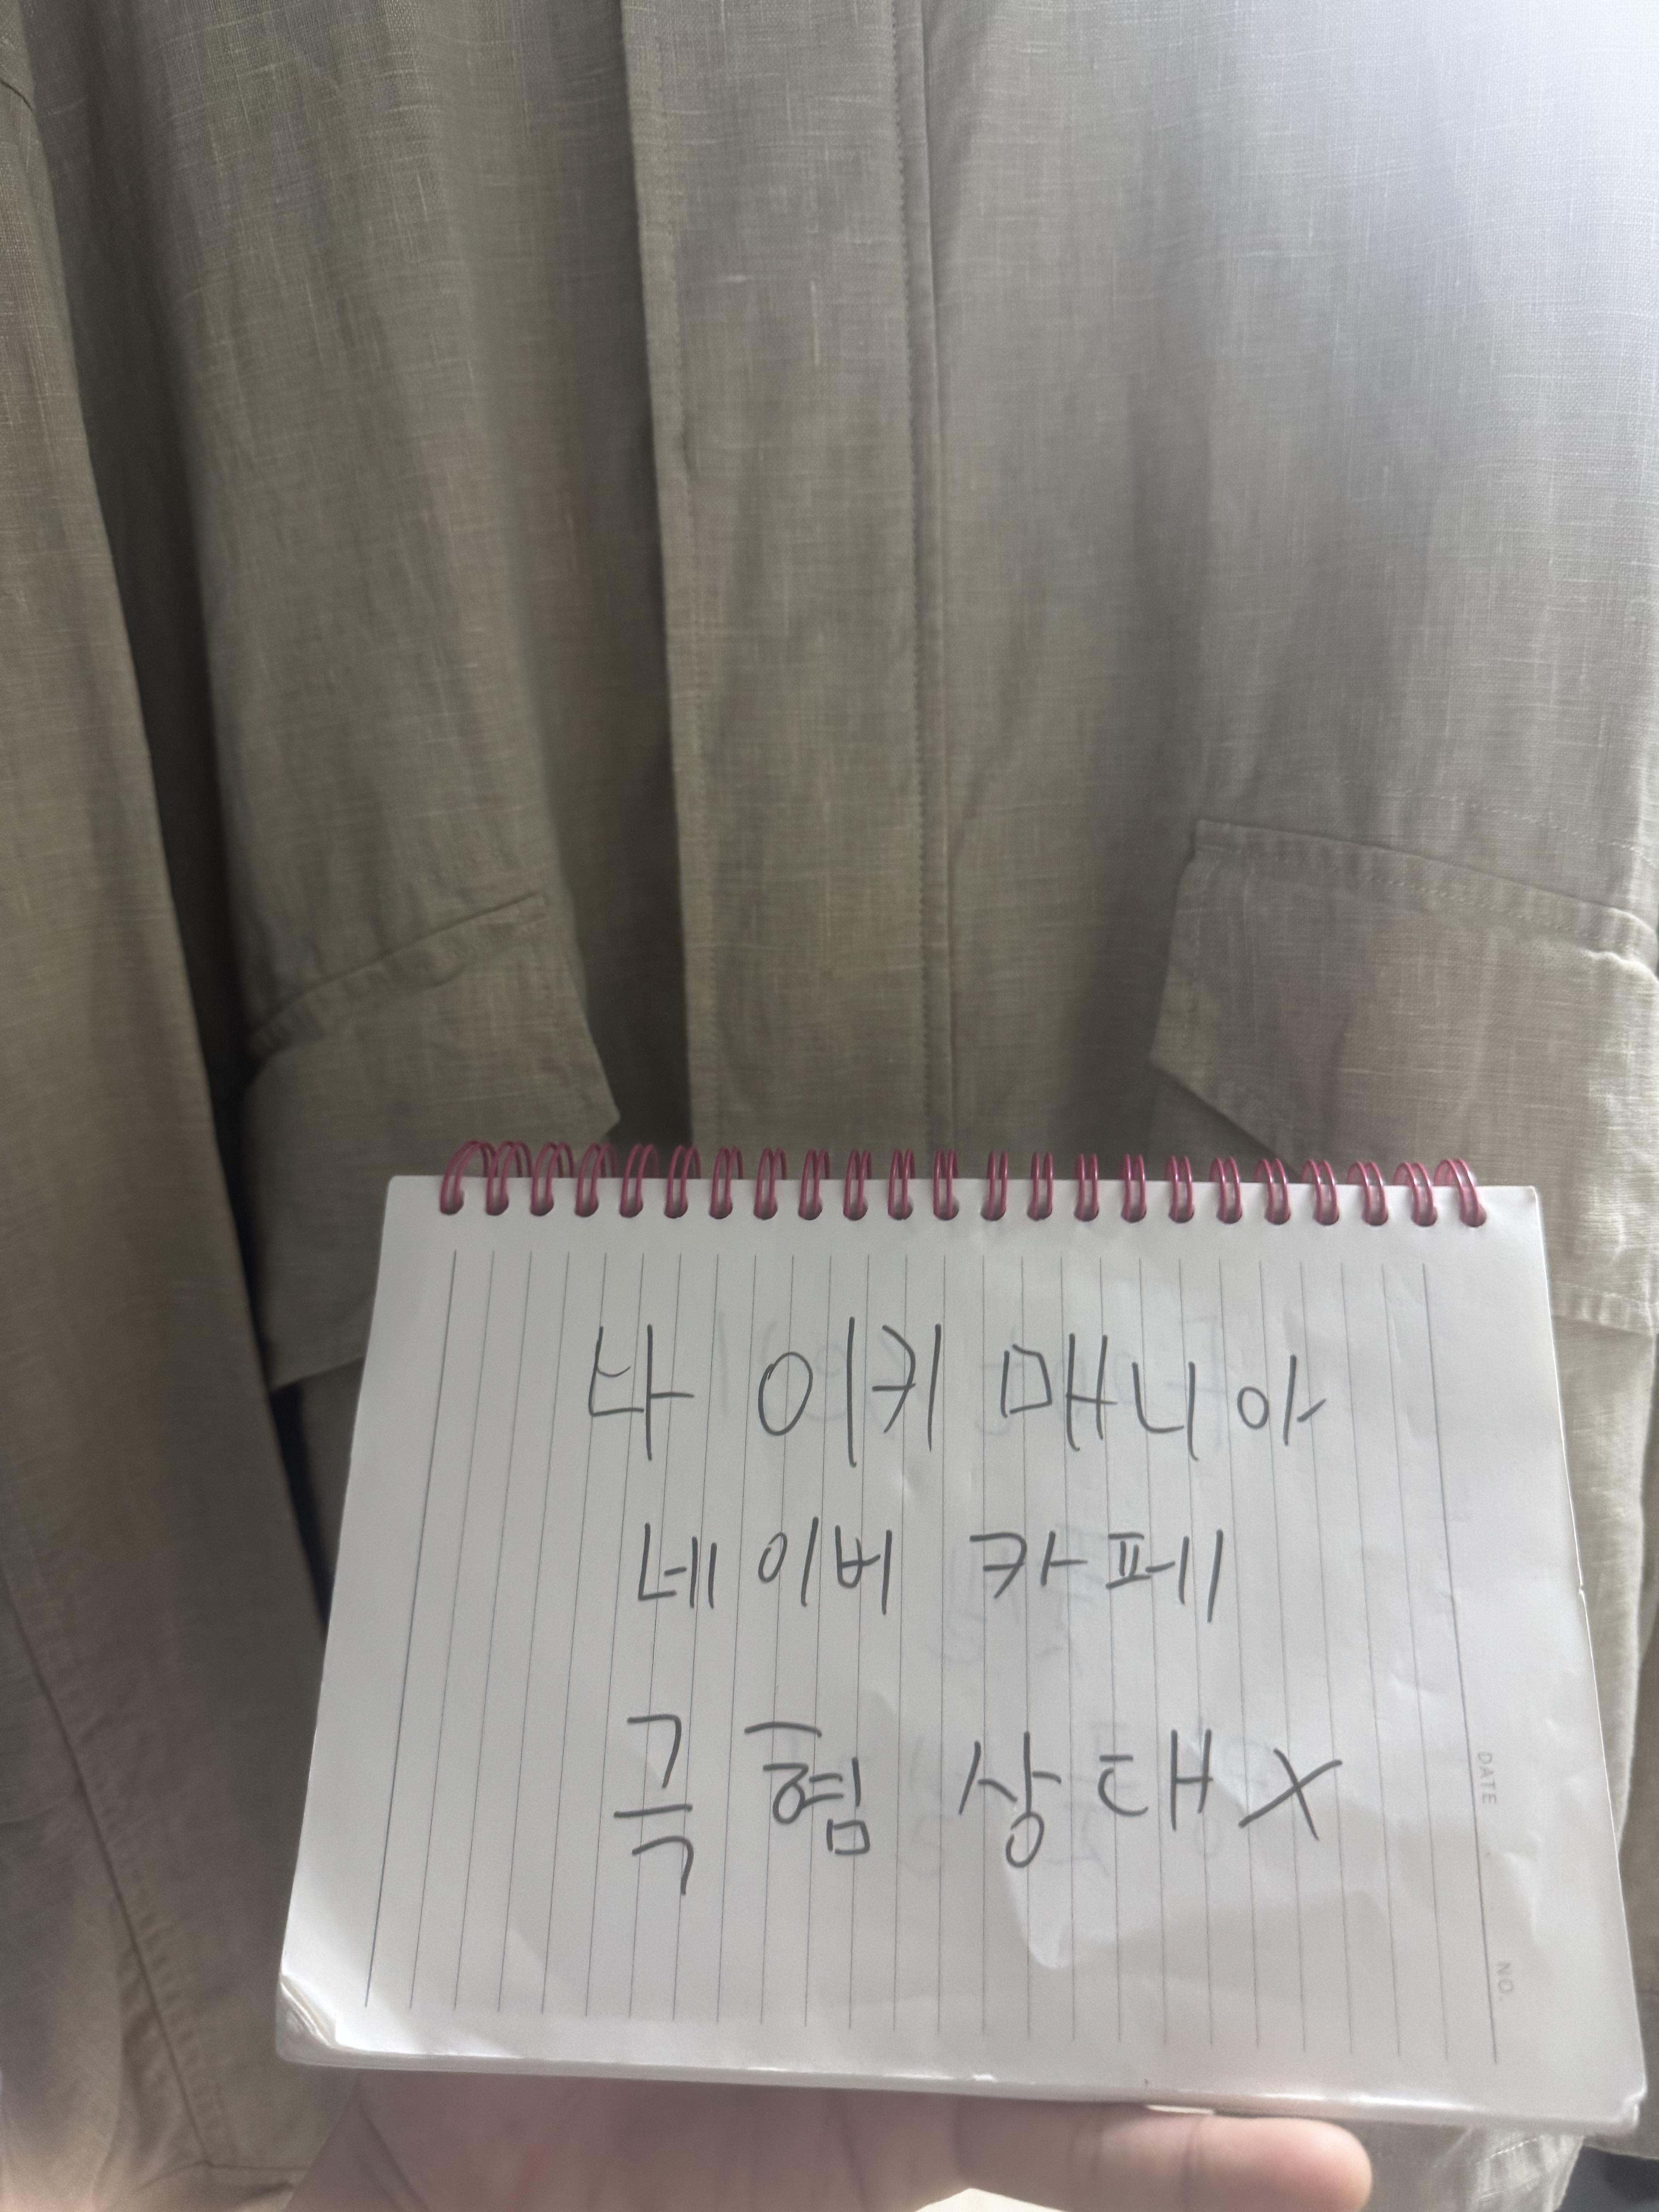 바이키 매니아
네이버 카페
극혐 상대X
DATE
NO.